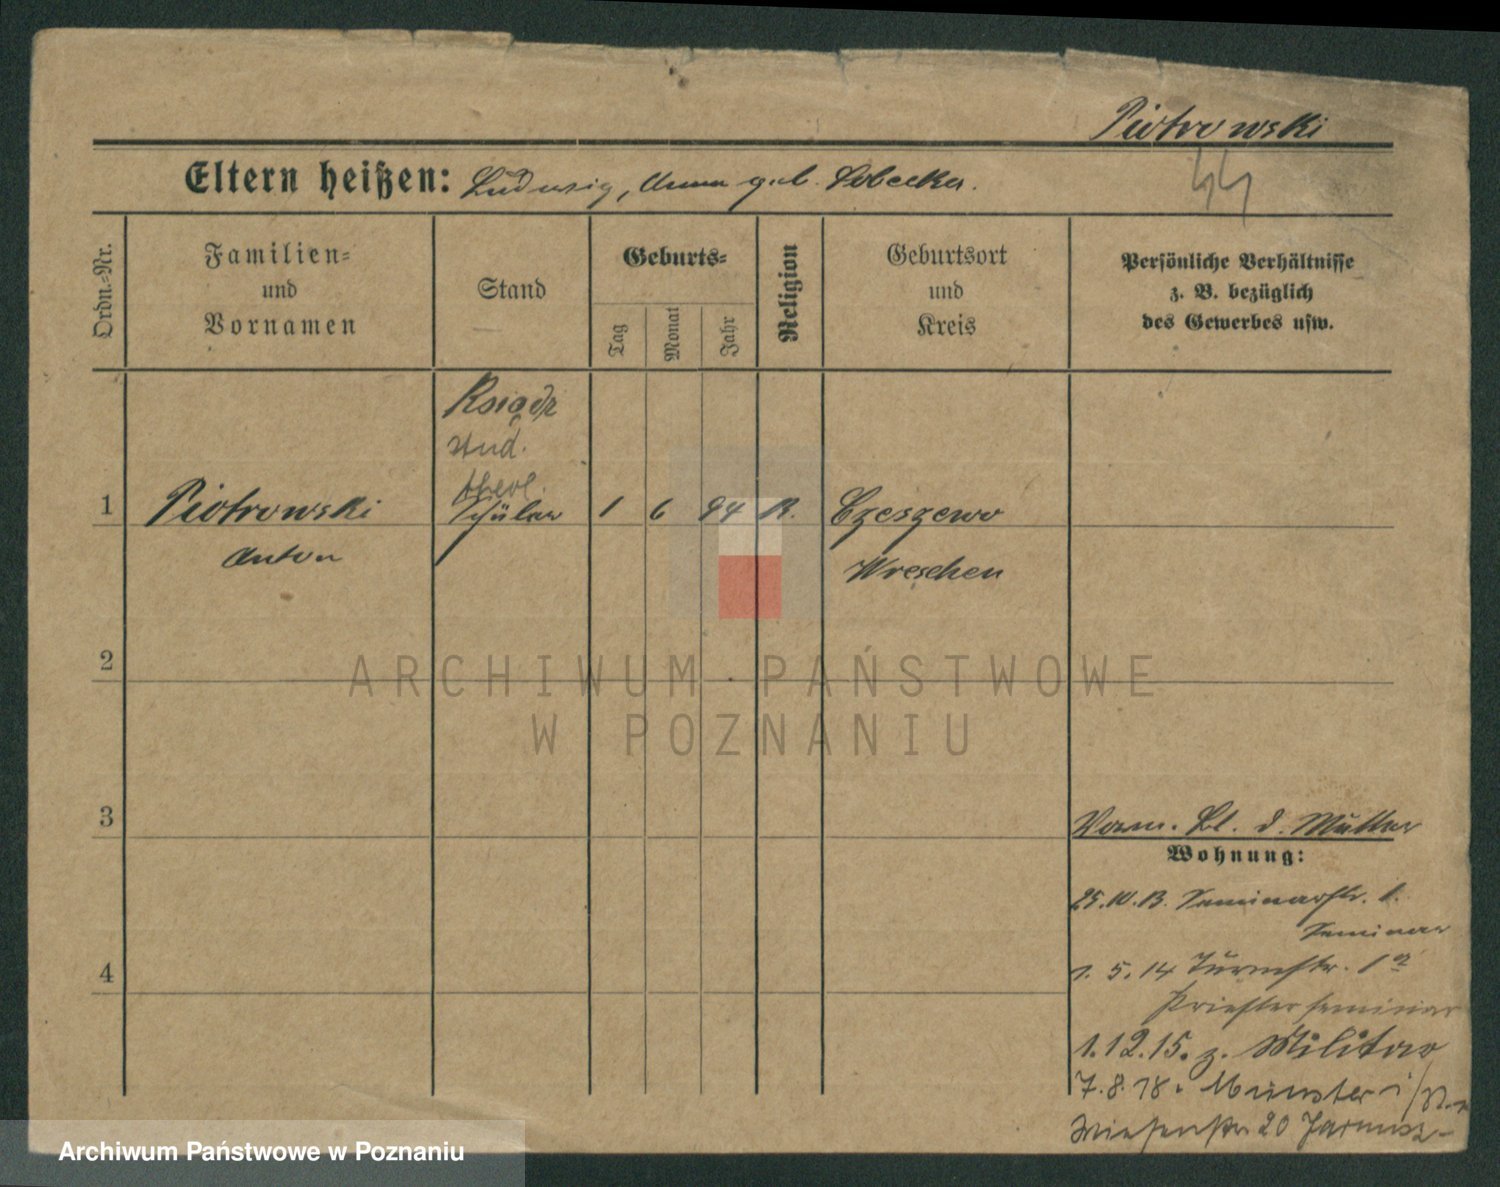 Piotrowski
44
Eltern heißen: Ludwig, Anna geb. Sobecka.
Ordn.-Nr.
Familien- und Vornamen
Stand
Geburts-
Tag
Monat
Jahr
Religion
Geburtsort und Kreis
Persönliche Verhältnisse
z. B. bezüglich
des Gewerbes usw.
Ksiądz
stud.
theol.
1 Piotrowski Schüler 1 6 94 K. Czeszewo
Anton Wreschen
2
3
Vorm. Bl. d. Mutter
Wohnung:
Seminarstr. 1.
Seminar
4
1. 5. 14 Turmstr. 1a
Priesterseminar
1.12.15. z. Militär
7.8.18. Münster i/W.
20
ARCHIWUM PAŃSTWOWE
W POZNANIU
Archiwum Państwowe w Poznaniu